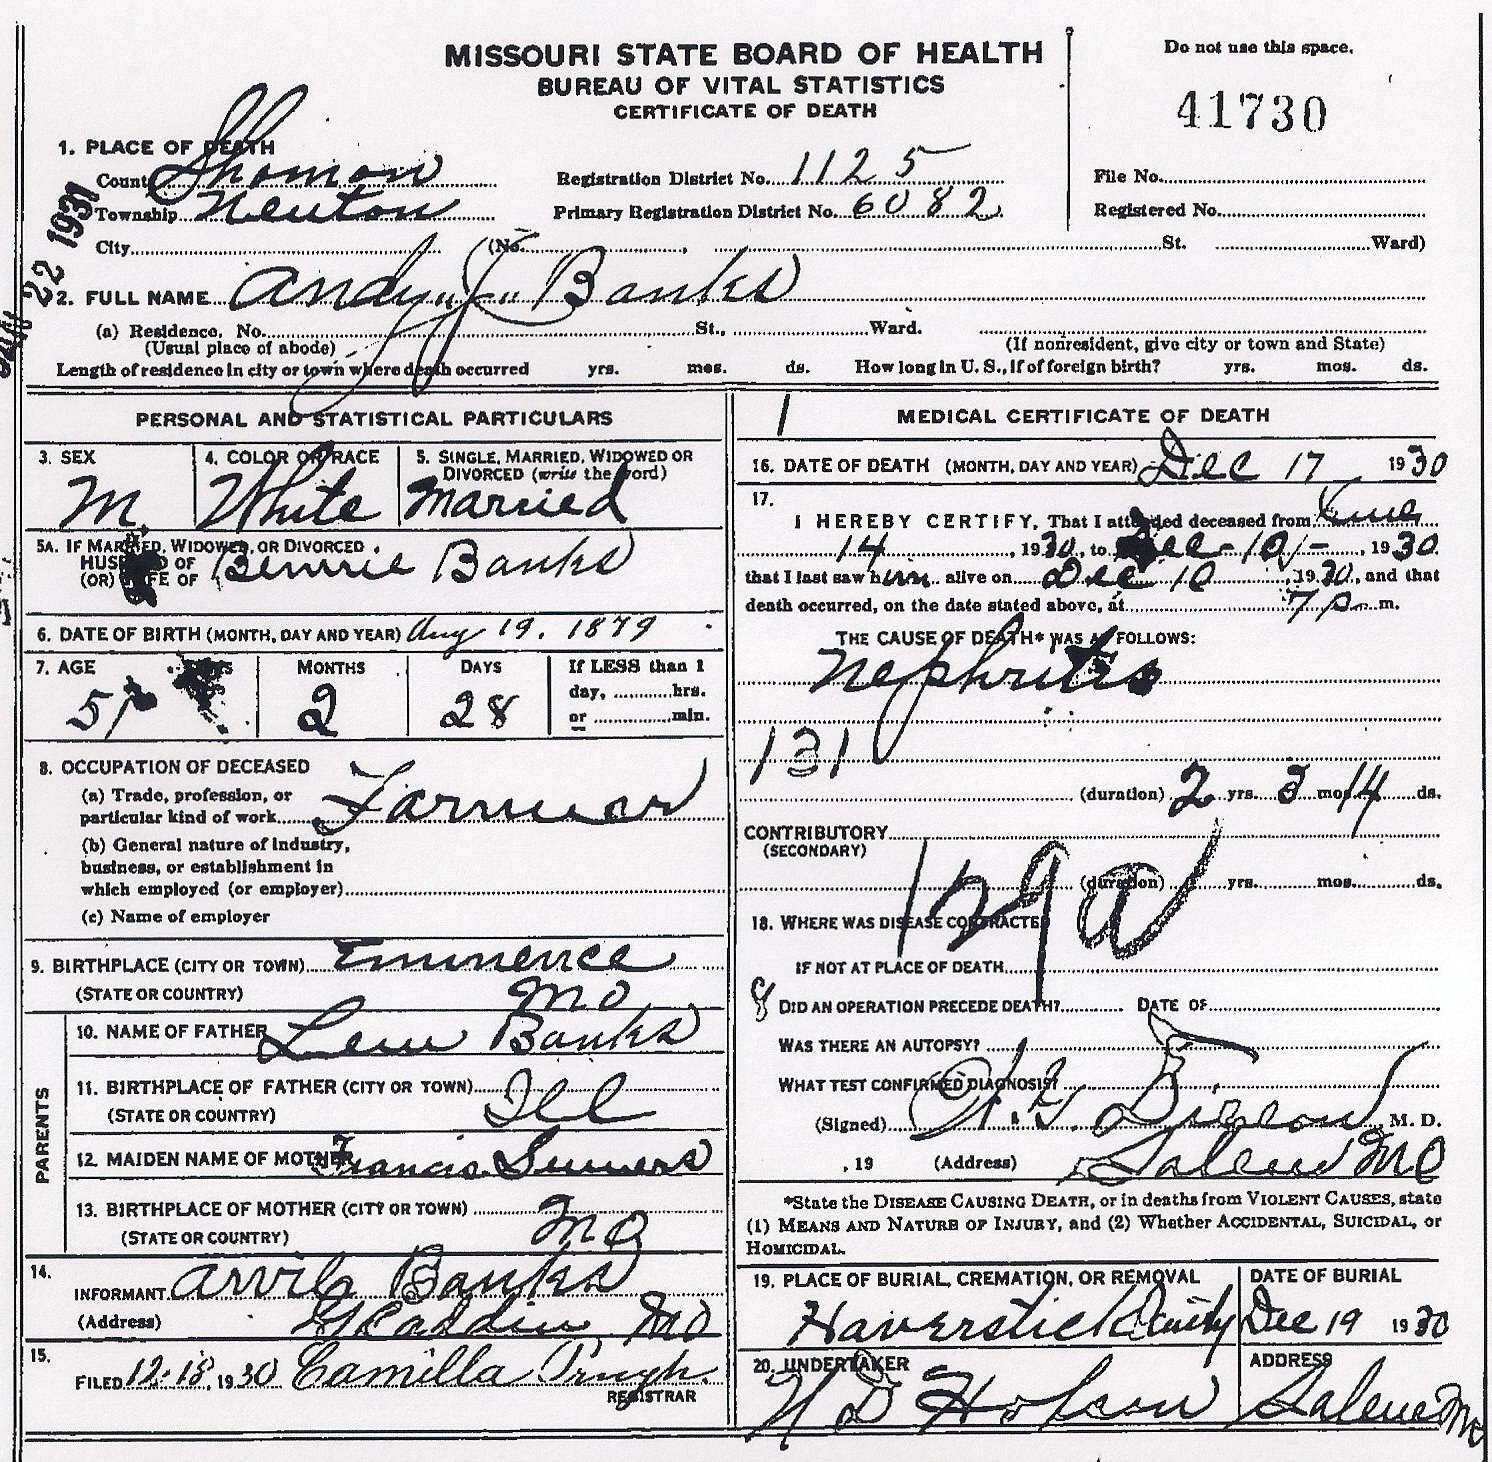 MISSOURI STATE BOARD OF HEALTH
BUREAU OF VITAL STATISTICS
CERTIFICATE OF DEATH
Do not use this space.
41730
1. PLACE OF DEATH
County Shannon Registration District No. 1125 File No.
Township Newton Primary Registration District No. 6082 Registered No.
City (No. , St. Ward)
22 1931
2. FULL NAME Andy "J" Banks
(a) Residence, No. St., Ward.
(Usual place of abode) (If nonresident, give city or town and State)
Length of residence in city or town where death occurred yrs. mos. ds. How long in U. S., if of foreign birth? yrs. mos. ds.
PERSONAL AND STATISTICAL PARTICULARS
3. SEX 4. COLOR OR RACE 5. SINGLE, MARRIED, WIDOWED OR
DIVORCED (write the word)
M. White Married
5A. IF MARRIED, WIDOWED, OR DIVORCED
HUSBAND OF
(OR) WIFE OF Bennie Banks
6. DATE OF BIRTH (MONTH, DAY AND YEAR) Aug 19. 1879
7. AGE YEARS MONTHS DAYS If LESS than 1
day, hrs.
or min.
51 2 28
8. OCCUPATION OF DECEASED
(a) Trade, profession, or
particular kind of work Farmer
(b) General nature of industry,
business, or establishment in
which employed (or employer)
(c) Name of employer
9. BIRTHPLACE (CITY OR TOWN) Eminence
(STATE OR COUNTRY) Mo
PARENTS
10. NAME OF FATHER Lew Banks
11. BIRTHPLACE OF FATHER (CITY OR TOWN)
(STATE OR COUNTRY) Ill
12. MAIDEN NAME OF MOTHER Francis Sumers
13. BIRTHPLACE OF MOTHER (CITY OR TOWN)
(STATE OR COUNTRY) Mo
14.
INFORMANT Arvil Banks
(Address) Gladden Mo
15.
FILED 12-18, 1930 Camilla Prugh.
REGISTRAR
1 MEDICAL CERTIFICATE OF DEATH
16. DATE OF DEATH (MONTH, DAY AND YEAR) Dec 17 1930
17.
I HEREBY CERTIFY, That I attended deceased from June
14, 1930, to Dec-10-, 1930
that I last saw him alive on Dec 10, 1930, and that
death occurred, on the date stated above, at 7 p. m.
THE CAUSE OF DEATH* WAS AS FOLLOWS:
Nephritis
131
(duration) 2 yrs. 3 mos. 14 ds.
CONTRIBUTORY
(SECONDARY)
129a
(duration) yrs. mos. ds.
18. WHERE WAS DISEASE CONTRACTED
IF NOT AT PLACE OF DEATH
8 DID AN OPERATION PRECEDE DEATH? DATE OF
WAS THERE AN AUTOPSY?
WHAT TEST CONFIRMED DIAGNOSIS?
(Signed) M. D.
, 19 (Address) Salem Mo
*State the DISEASE CAUSING DEATH, or in deaths from VIOLENT CAUSES, state
(1) MEANS AND NATURE OF INJURY, and (2) Whether ACCIDENTAL, SUICIDAL, or
HOMICIDAL.
19. PLACE OF BURIAL, CREMATION, OR REMOVAL DATE OF BURIAL
Haverstick Dec 19 1930
20. UNDERTAKER ADDRESS
N D Hobson Salem Mo